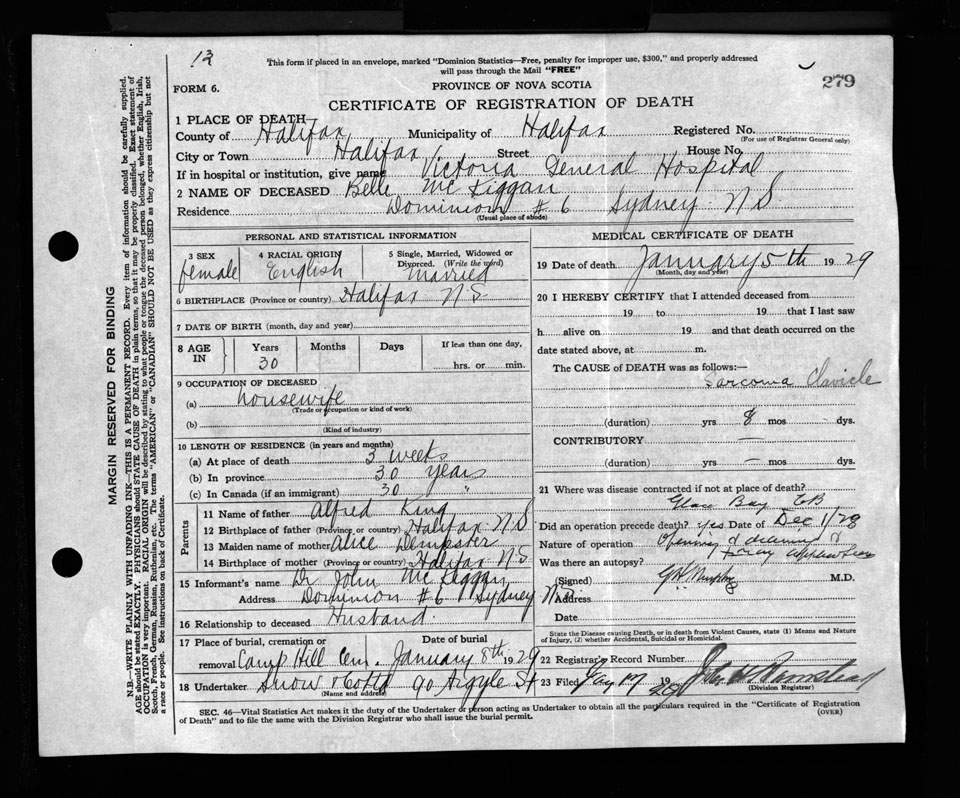 13
This form if placed in an envelope, marked "Dominion Statistics—Free, penalty for improper use, $300," and properly addressed
will pass through the Mail "FREE"
279
FORM 6.
PROVINCE OF NOVA SCOTIA
CERTIFICATE OF REGISTRATION OF DEATH
1 PLACE OF DEATH
County of Halifax Municipality of Halifax Registered No.
(For use of Registrar General only)
City or Town Halifax Street House No.
If in hospital or institution, give name Victoria General Hospital
2 NAME OF DECEASED Belle
Residence Dominion # 6 Sydney N S
(Usual place of abode)
PERSONAL AND STATISTICAL INFORMATION
3 SEX 4 RACIAL ORIGIN 5 Single, Married, Widowed or
Divorced. (Write the word)
female English married
6 BIRTHPLACE (Province or country) Halifax N.S.
7 DATE OF BIRTH (month, day and year)
8 AGE IN Years Months Days If less than one day,
30 hrs. or min.
9 OCCUPATION OF DECEASED
(a) housewife
(Trade or occupation or kind of work)
(b)
(Kind of industry)
10 LENGTH OF RESIDENCE (in years and months)
(a) At place of death 3 weeks
(b) In province 30 years
(c) In Canada (if an immigrant) 30 "
Parents
11 Name of father Alfred King
12 Birthplace of father (Province or country) Halifax N S
13 Maiden name of mother Alice Dempster
14 Birthplace of mother (Province or country) Halifax N S
15 Informant's name Dr John
Address Dominion # 6 Sydney N S
16 Relationship to deceased Husband
17 Place of burial, cremation or Date of burial
removal Camp Hill Cem. January 8th 1929
18 Undertaker Snow & Co Ltd 90 Argyle St
(Name and address)
MEDICAL CERTIFICATE OF DEATH
19 Date of death January 5th 1929
(Month, day and year)
20 I HEREBY CERTIFY that I attended deceased from
19 to 19 that I last saw
h alive on 19 and that death occurred on the
date stated above, at m.
The CAUSE of DEATH was as follows:—
Sarcoma Clavicle
(duration) yrs 8 mos dys.
CONTRIBUTORY —
(duration) yrs — mos dys.
21 Where was disease contracted if not at place of death?
Glace Bay CB
Did an operation precede death? Yes Date of Dec 1/28
Nature of operation Opening &
Was there an autopsy?
(Signed) M.D.
Address
Date
State the Disease causing Death, or in death from Violent Causes, state (1) Means and Nature
of Injury, (2) whether Accidental, Suicidal or Homicidal.
22 Registrar's Record Number
23 Filed 19
(Division Registrar)
SEC. 46—Vital Statistics Act makes it the duty of the Undertaker or person acting as Undertaker to obtain all the particulars required in the "Certificate of Registration
of Death" and to file the same with the Division Registrar who shall issue the burial permit.
(OVER)
MARGIN RESERVED FOR BINDING
N.B.—WRITE PLAINLY WITH UNFADING INK—THIS IS A PERMANENT RECORD. Every item of information should be carefully supplied.
AGE should be stated EXACTLY. PHYSICIANS should STATE CAUSE OF DEATH in plain terms, so that it may be properly classified. Exact statement of
OCCUPATION is very important. RACIAL ORIGIN will be described by stating to what people or tongue the deceased person belonged, whether English, Irish,
Scotch, French, German, Russian, Ruthenian, etc. The terms "AMERICAN" or "CANADIAN" SHOULD NOT BE USED as they express citizenship but not
a race or people. See instructions on back of Certificate.